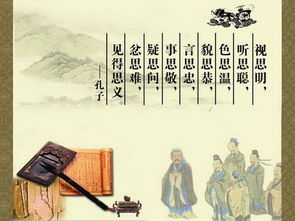 视思明，
听思聪，
色思温，
貌思恭，
言思忠，
事思敬，
疑思问，
忿思难，
见得思义。
——孔子